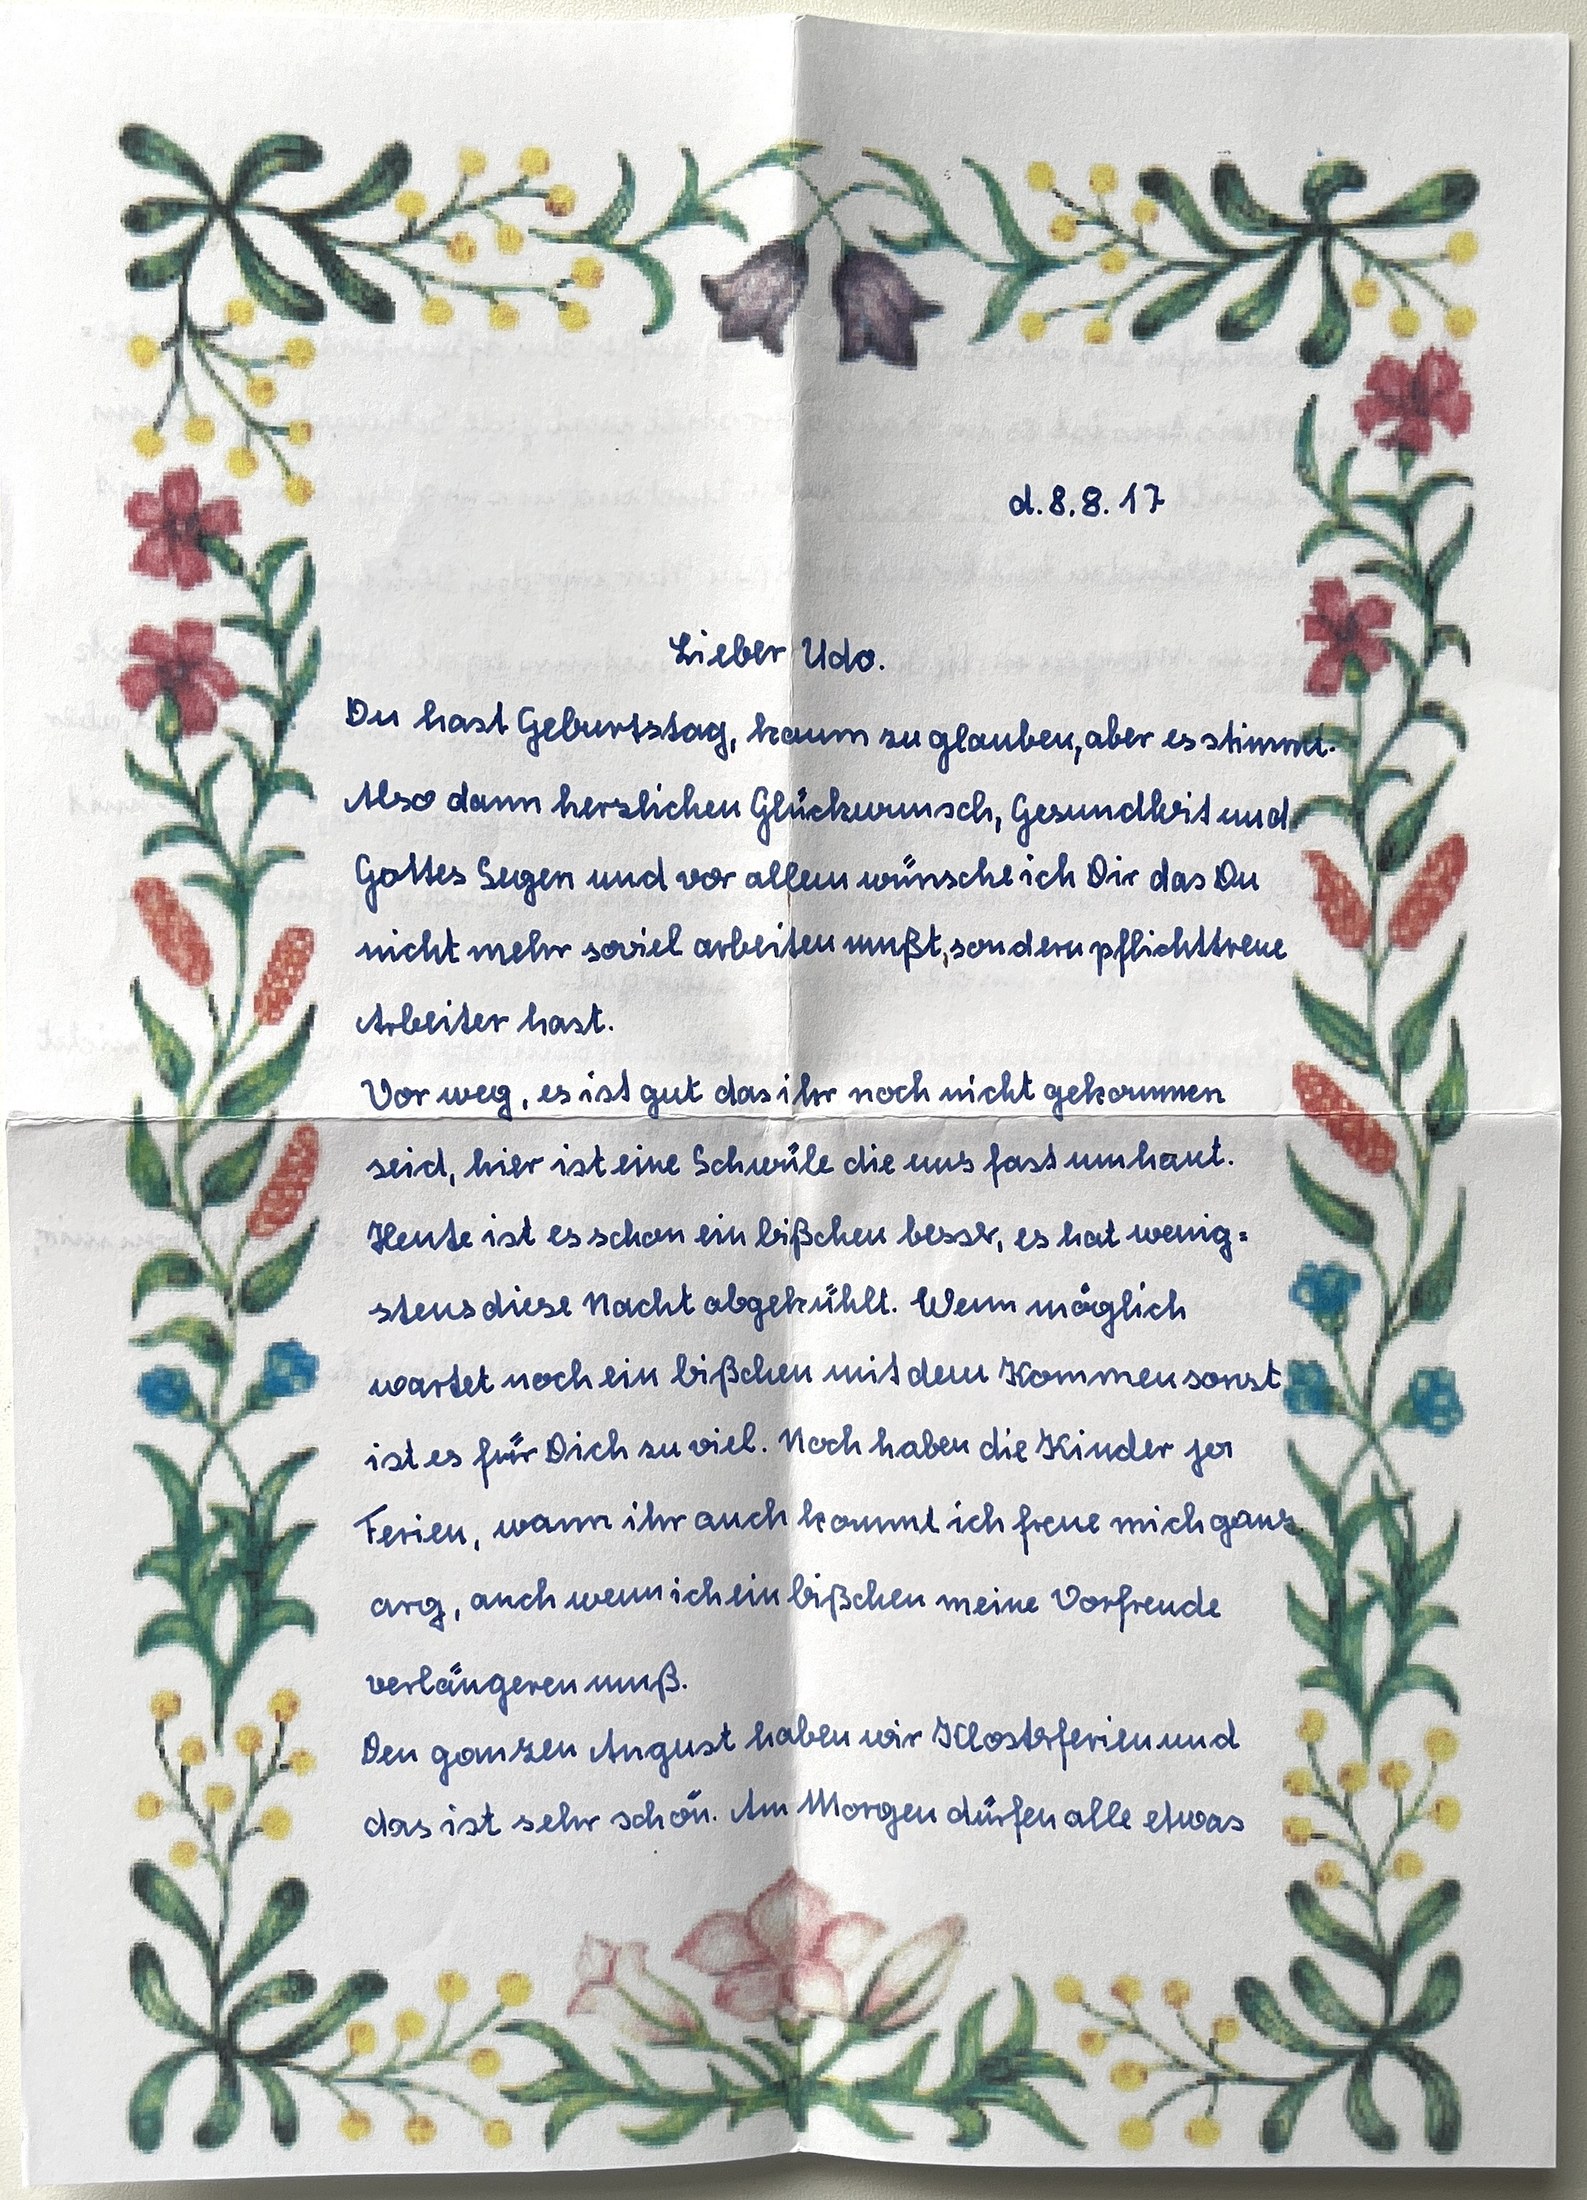 d. 8. 8. 17
Lieber Udo.
Du hast Geburtstag, kaum zu glauben, aber es stimmt.
Also dann herzlichen Glückwunsch, Gesundheit und
Gottes Segen und vor allem wünsche ich Dir das Du
nicht mehr soviel arbeiten mußt, sondern pflichttreue
Arbeiter hast.
Vor weg, es ist gut das ihr noch nicht gekommen
seid, hier ist eine Schwüle die uns fast umhaut.
Heute ist es schon ein bißchen besser, es hat wenig=
stens diese Nacht abgekühlt. Wenn möglich
wartet noch ein bißchen mit dem Kommen sonst
ist es für Dich zu viel. Noch haben die Kinder ja
Ferien, wann ihr auch kommt ich freue mich ganz
arg, auch wenn ich ein bißchen meine Vorfreude
verlängeren muß.
Den ganzen August haben wir Klosterferien und
das ist sehr schön. Am Morgen dürfen alle etwas